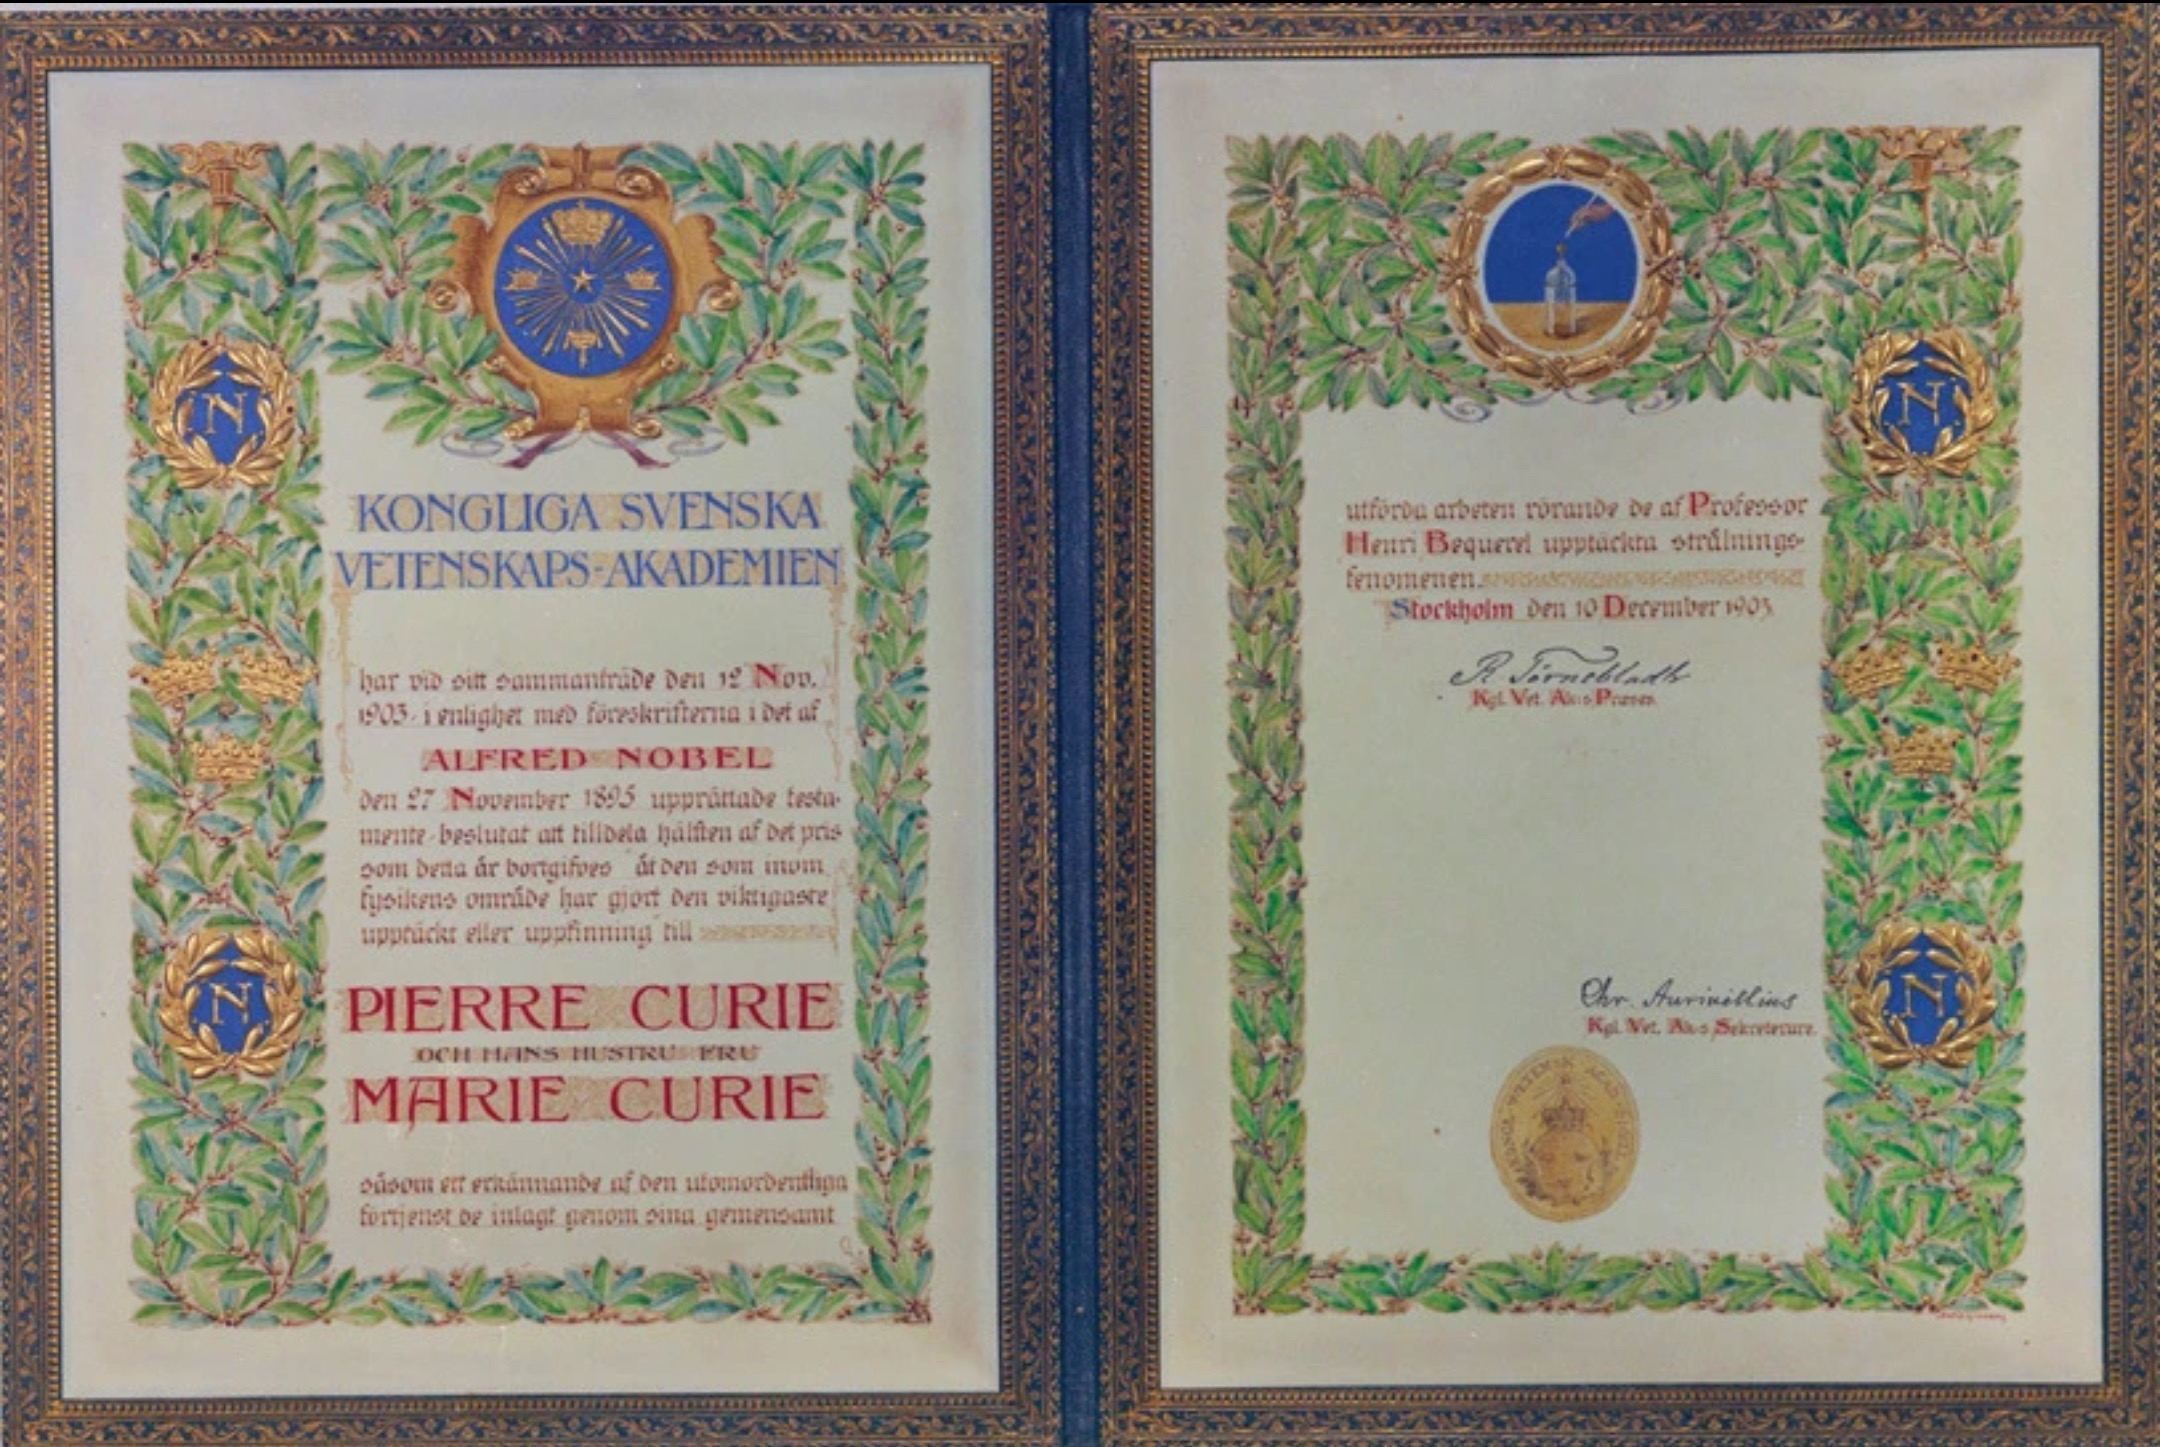 KONGLIGA SVENSKA
VETENSKAPS-AKADEMIEN
har vid sitt sammanträde den 12 Nov.
1903 i enlighet med föreskrifterna i det af
ALFRED NOBEL
den 27 November 1895 upprättade testa-
mente beslutat att tilldela hälften af det pris
som detta år bortgifves åt den som inom
fysikens område har gjort den viktigaste
upptäckt eller uppfinning till
PIERRE CURIE
OCH HANS HUSTRU FRU
MARIE CURIE
såsom ett erkännande af den utomordentliga
förtjenst de inlagt genom sina gemensamt
N
N
utförda arbeten rörande de af Professor
Henri Bequerel upptäckta strålnings-
fenomenen.
Stockholm den 10 December 1903.
R Törnebladh
Kgl. Vet. Ak:s Præses.
Chr. Aurivillius
Kgl. Vet. Ak:s Sekreterare.
N
N